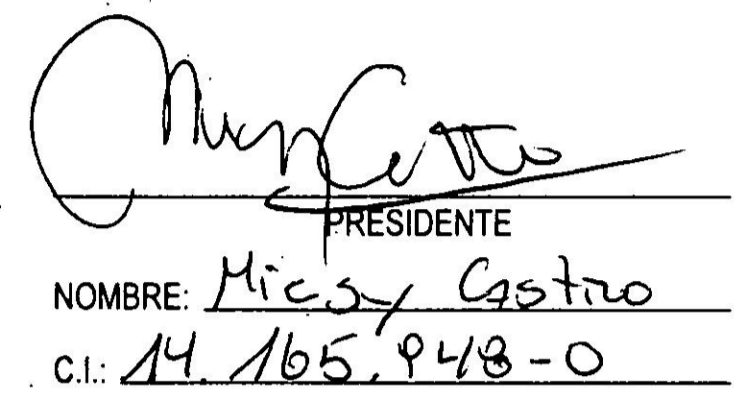 PRESIDENTE
NOMBRE: Micsy Castro
C.I.: 14.165.948-0